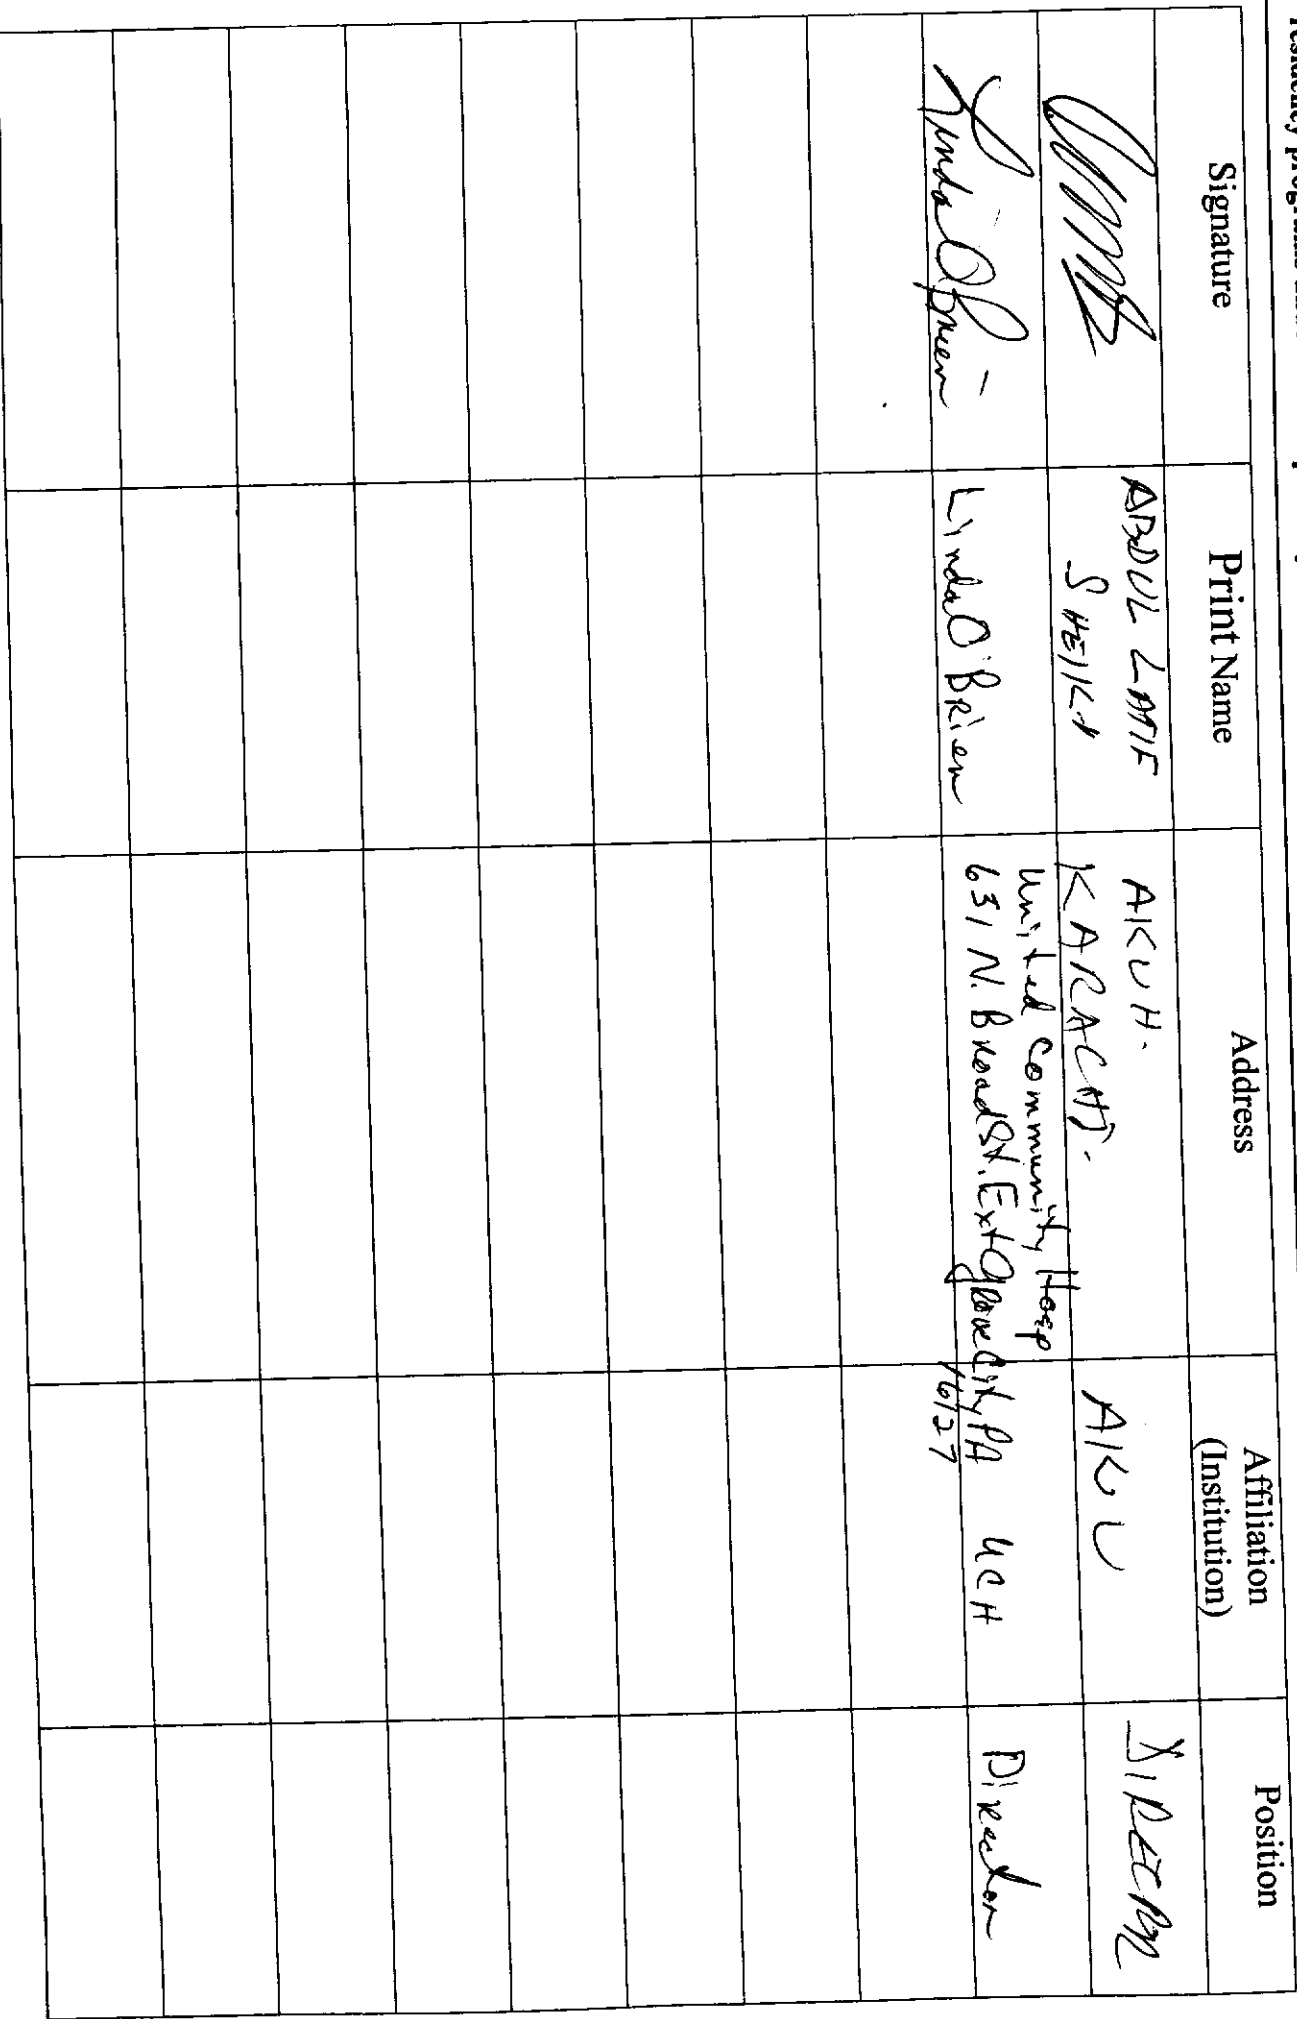 residency programs
Signature
Print Name
Address
Affiliation
(Institution)
Position
ABDUL LATIF
SHEIKH
AKUH.
KARACHI.
AKU
DIRECTOR
Linda O'Brien
Linda O'Brien
United Community Hosp
631 N. Broad St. Ext Grove City PA
16127
UCH
Director